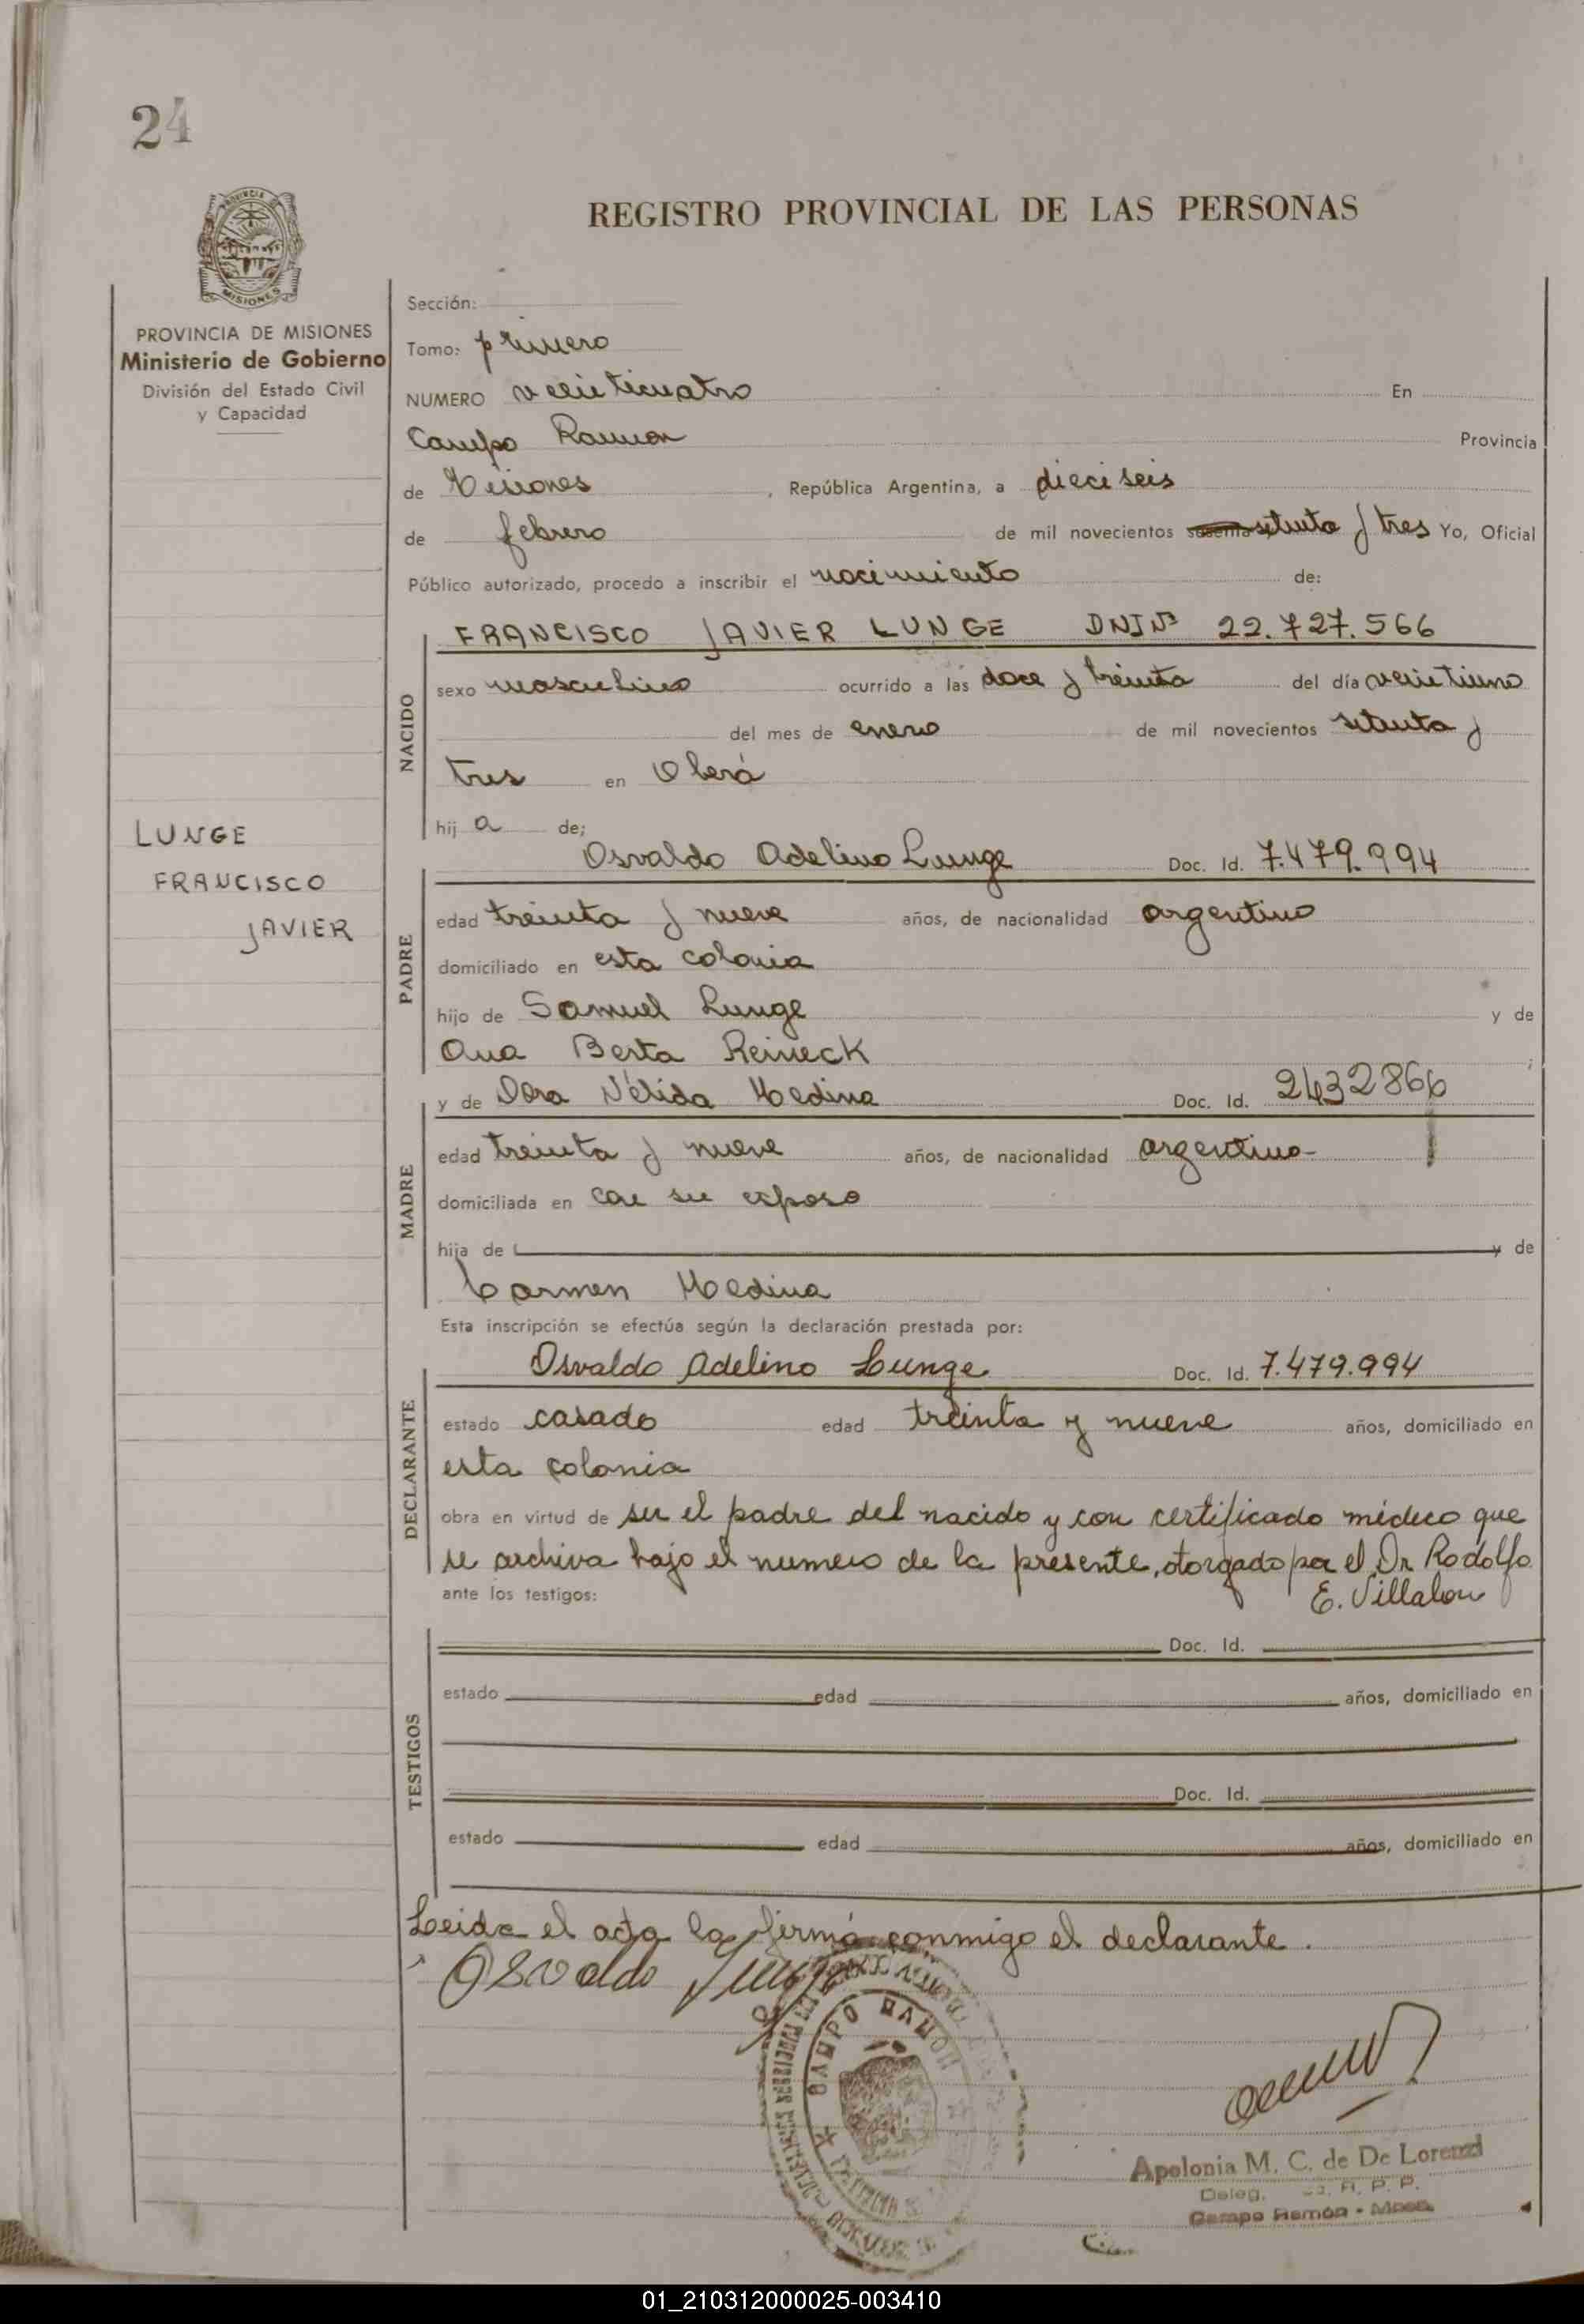 24
REGISTRO PROVINCIAL DE LAS PERSONAS
PROVINCIA DE MISIONES
Ministerio de Gobierno
División del Estado Civil
y Capacidad
Sección:
Tomo: primero
NUMERO veinticuatro En
Campo Ramon Provincia
de Misiones, República Argentina, a dieciseis
de febrero de mil novecientos setenta y tres Yo, Oficial
Público autorizado, procedo a inscribir el nacimiento de:
FRANCISCO JAVIER LUNGE DNI Nº 22.727.566
NACIDO
sexo masculino ocurrido a las doce y treinta del día veintiuno
del mes de enero de mil novecientos setenta y
tres en Oberá
hij a de;
LUNGE
FRANCISCO
JAVIER
Osvaldo Adelino Lunge Doc. Id. 7.479.994
PADRE
edad treinta y nueve años, de nacionalidad argentino
domiciliado en esta colonia
hijo de Samuel Lunge y de
Ana Berta Reineck ;
y de Dora Nélida Medina Doc. Id. 2432866
MADRE
edad treinta y nueve años, de nacionalidad argentina
domiciliada en con su esposo
hija de y de
Carmen Medina
Esta inscripción se efectúa según la declaración prestada por:
Osvaldo Adelino Lunge Doc. Id. 7.479.994
DECLARANTE
estado casado edad treinta y nueve años, domiciliado en
esta colonia
obra en virtud de ser el padre del nacido y con certificado médico que
se archiva bajo el numero de la presente, otorgado por el Dr Rodolfo
E. Villalon
ante los testigos:
Doc. Id.
TESTIGOS
estado edad años, domiciliado en
Doc. Id.
estado edad años, domiciliado en
Leida el acta la firmá conmigo el declarante.
Osvaldo Lunge
CAMPO RAMON
Apolonia M. C. de De Lorenzi
Deleg. R. P. P.
Campo Ramón - Mnes.
01_210312000025-003410